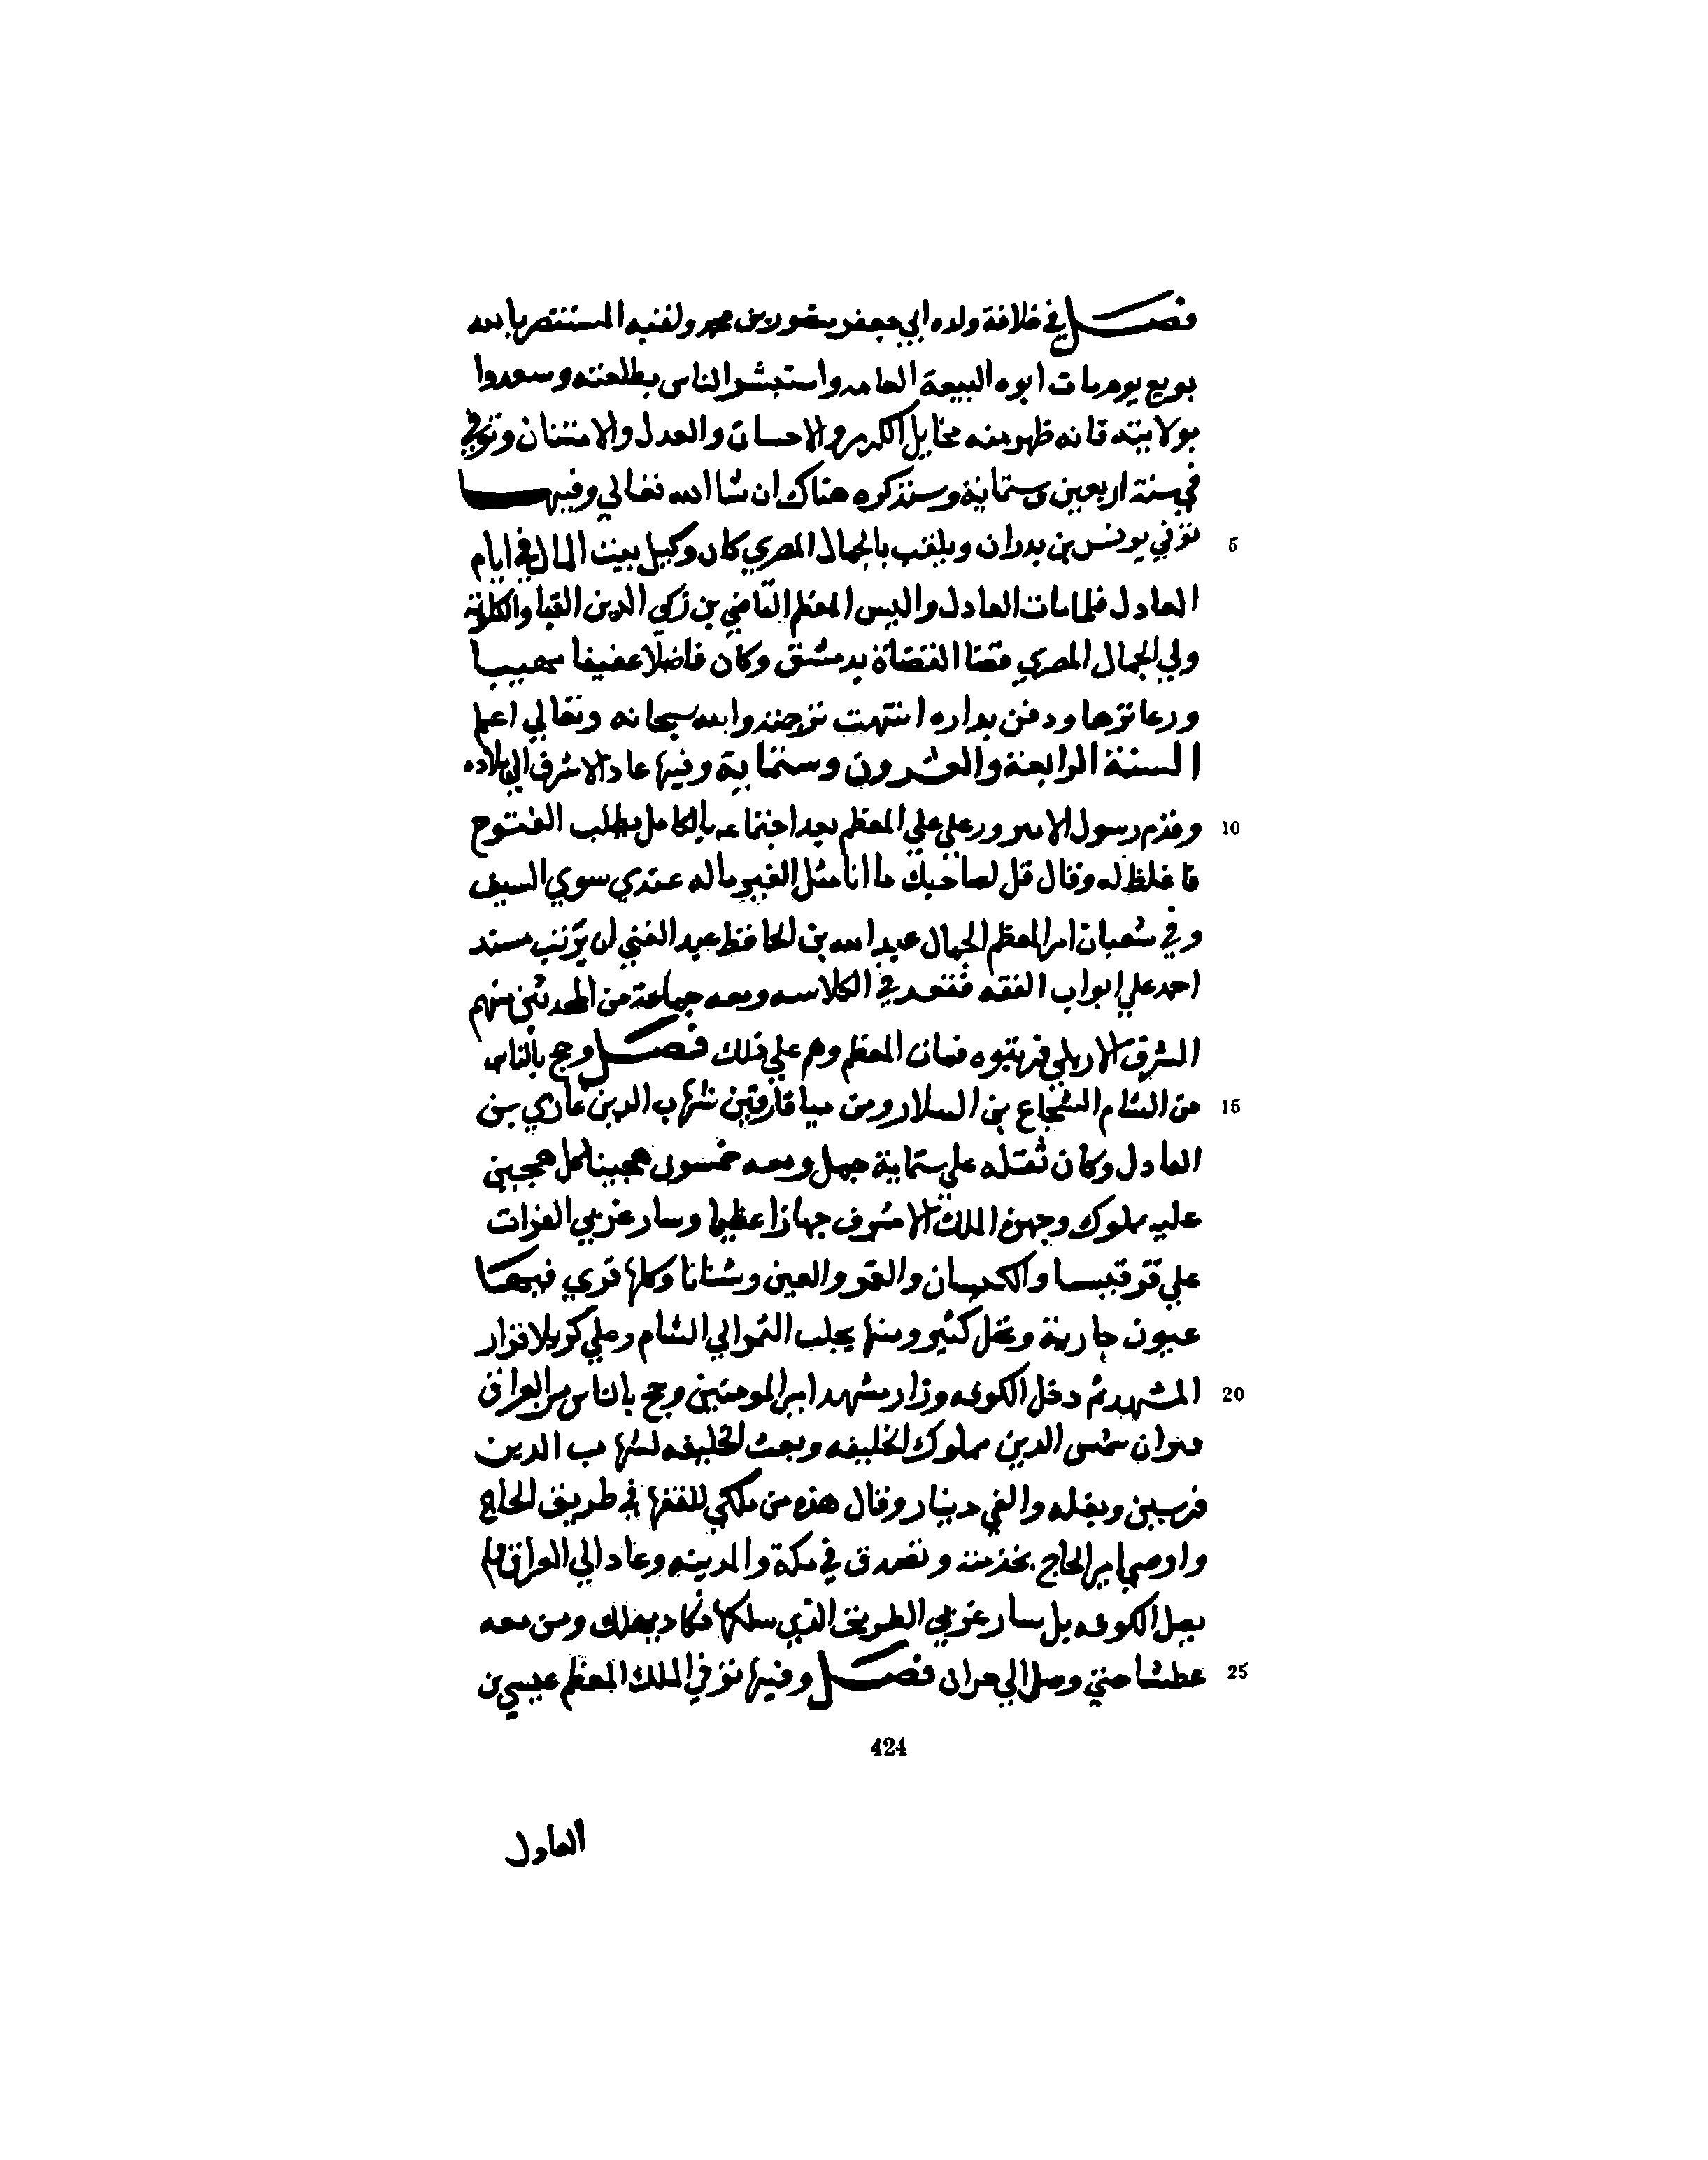 فصل في خلافة ولده ابي جعفر منصور بن محمد ولقبه المستنصر بالله
بويع يوم مات ابوه البيعة العامه واستبشر الناس بطلعته وسعدوا
بولايته فانه ظهر منه مخايل الكرم والاحسان والعدل والامتنان وتوفي
في سنة اربعين وستماية وسنذكره هناك ان شا الله تعالي وفيها
توفي يونس بن بدران ويلقب بالجمال المصري كان وكيل بيت المال في ايام
العادل فلما مات العادل والبس المعظم القاضي بن زكي الدين القبا والكلوتة
ولي الجمال المصري قضا القضاة بدمشق وكان فاضلا عفيفا مهيبا
ورعا نزها ودفن بداره انتهت ترجمته والله سبحانه وتعالي اعلم
السنة الرابعة والعشرون وستماية وفيها عاد الاشرف الي بلاده
وقدم رسول الانبرور علي علي المعظم بعد اجتماعه بالكامل بطلب الفتوح
فاغلظ له وقال قل لصاحبك ما انا مثل الغير ماله عندي سوي السيف
وفي شعبان امر المعظم الجمال عبد الله بن الحافظ عبد الغني ان يرتب مسند
احمد علي ابواب الفقه فقعد في الكلاسه ومعه جماعة من المحدثين منهم
الشرف الاربلي فرتبوه فمات المعظم وهم علي ذلك فصل وحج بالناس
من الشام الشجاع بن السلار ومن ميافارقين شهاب الدين غازي بن
العادل وكان ثقله علي ستماية جمل ومعه خمسون هجينا كل هجين
عليه مملوك وجهزه الملك الاشرف جهازا عظيما وسار غربي الفرات
علي قرقيسا والكبيسات والقمر والعين وشثاثا وكلها قري فيها
عيون جارية ونخل كثير ومنها يجلب التمر الي الشام وعلي كربلا فزار
المشهد ثم دخل الكوفه وزار مشهد امير المومنين وحج بالناس من العراق
قيران شمس الدين مملوك الخليفه وبعث الخليفه لشهاب الدين
فرسين وبغله والفي دينار وقال هذه من ملكي للنفقه في طريق الحاج
واوصي امير الحاج بخدمته وتصدق في مكة والمدينه وعاد الي العراق فلم
يصل الكوفه بل سار غربي الطريق الذي سلكها فكاد يهلك ومن معه
عطشا حتي وصل الي حران فصل وفيها توفي الملك المعظم عيسي بن
424
العادل
5
10
15
20
25